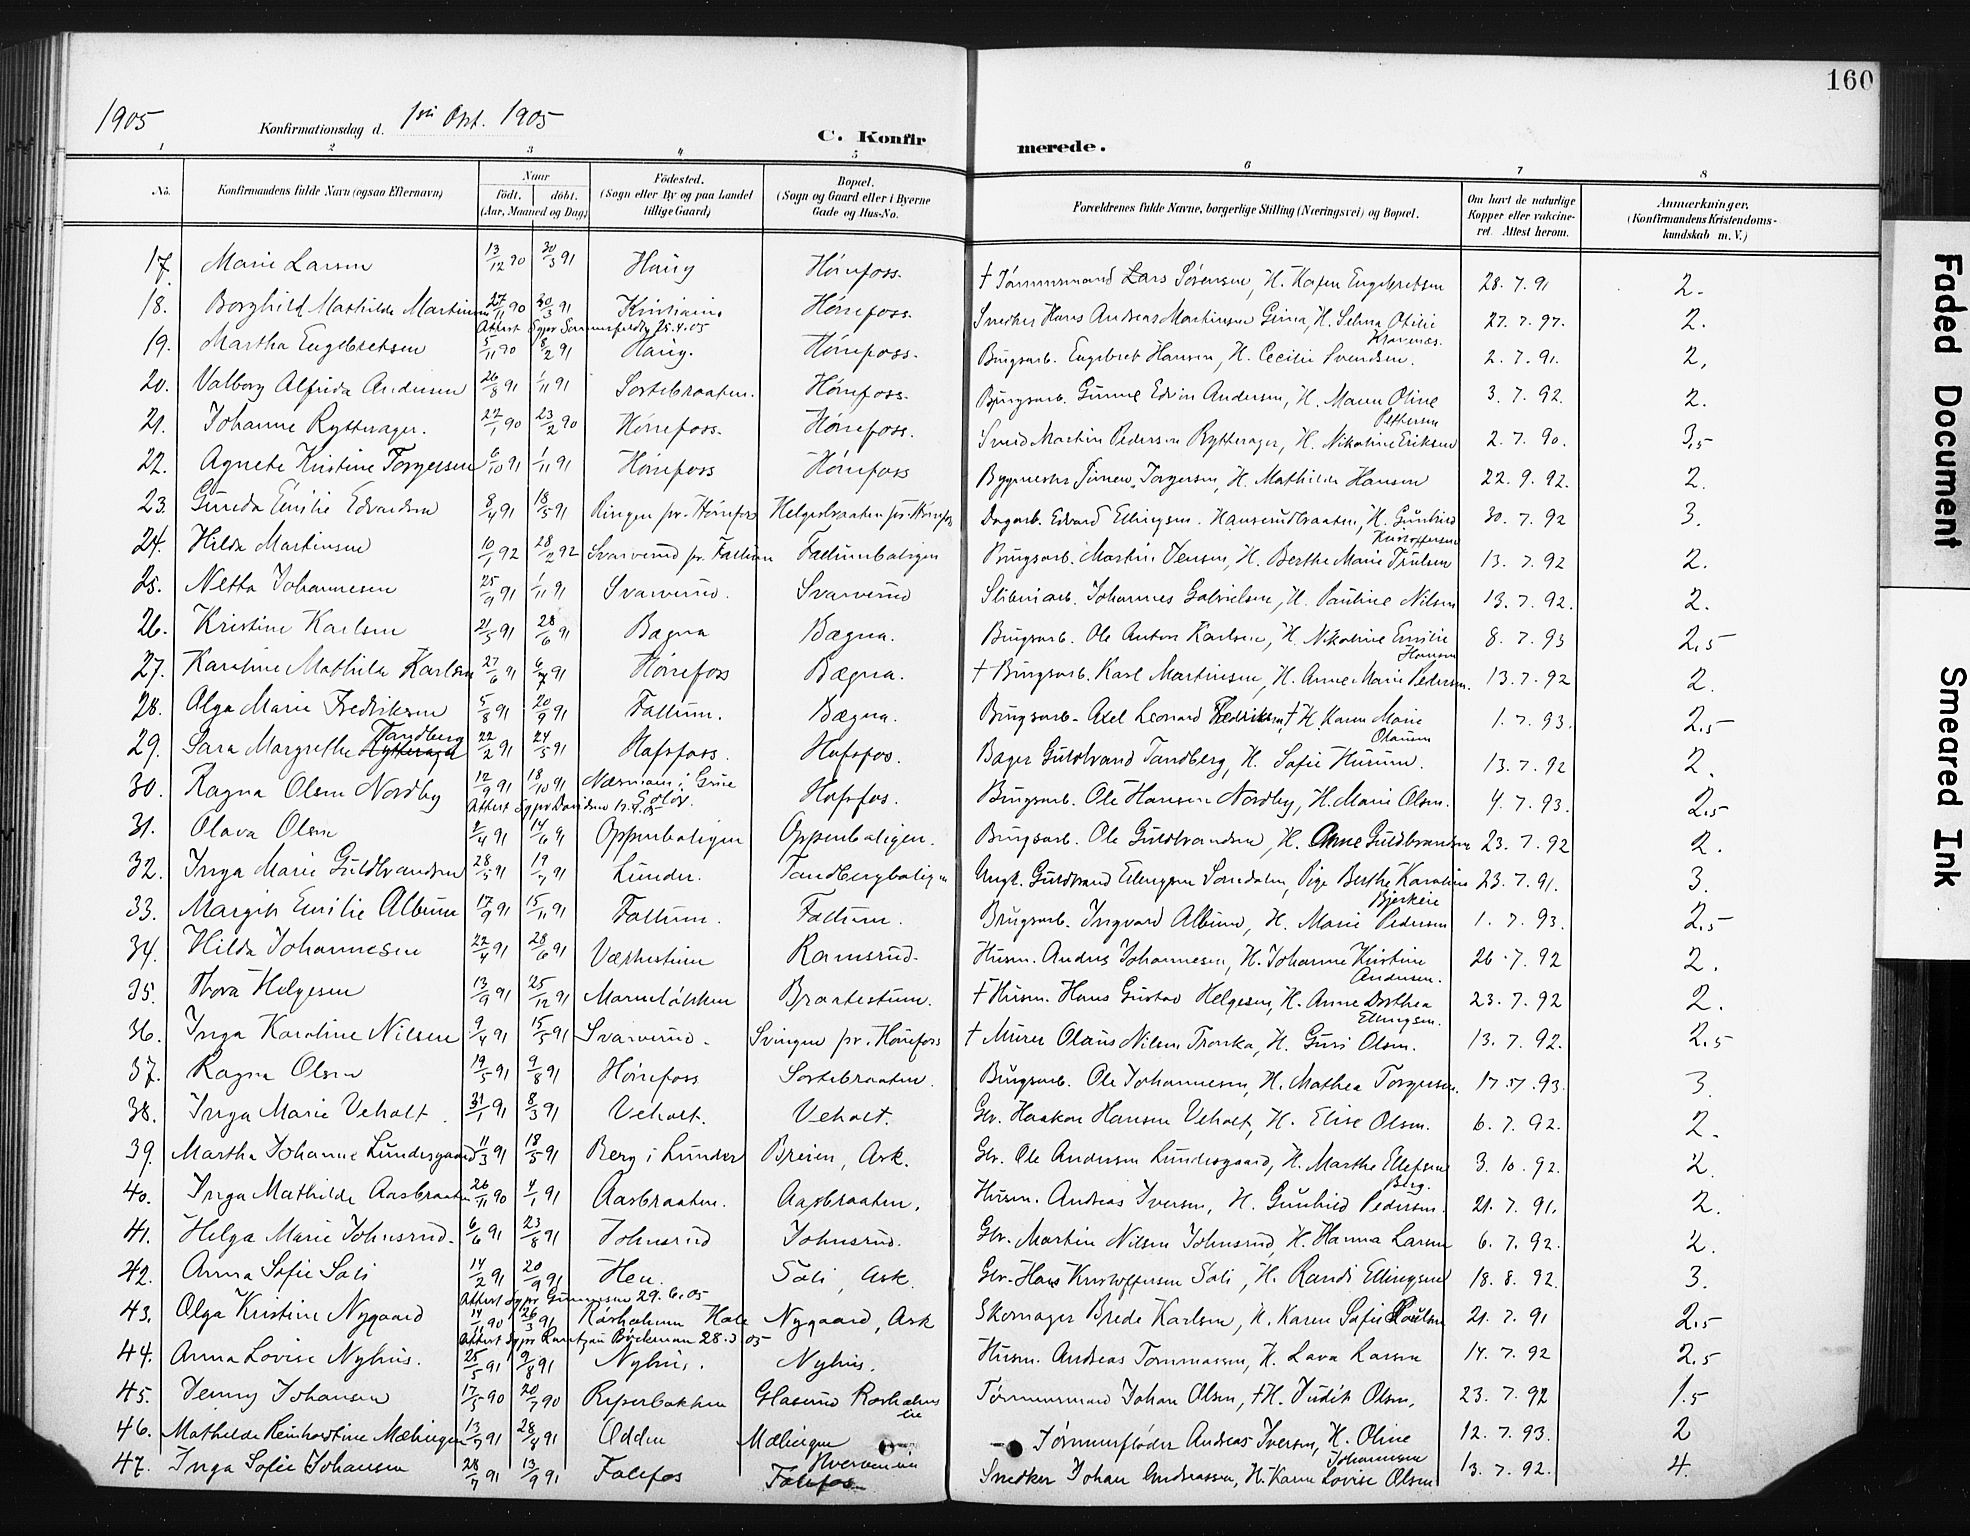 160
1905
Konfirmationsdag d. 1ste Okt. 1905
C. Konfirmerede.
1 2 3 4 5 6 7 8
No. Konfirmandens fulde Navn (ogsaa Efternavn) Naar født. døbt. (Aar, Maaned og Dag) Fødested. (Sogn eller By og paa Landet tillige Gaard) Bopæl. (Sogn og Gaard eller i Byerne Gade og Hus-No. Forældrenes fulde Navne, borgerlige Stilling (Næringsvei) og Bopæl. Om havt de naturlige Kopper eller vaccineret. Attest herom. Anmærkninger. (Konfirmandens Kristendomskundskab m. V.)
17. Marie Larsen 13/12 90 30/3 91 Haug Hønefoss. † Tømmermand Lars Sørensen, H. Karen Engebretsen 28.7.91 2.
18. Borghild Mathilde Martinsen 27/11 90 30/3 91 Kristiania Hønefoss. Snedker Hans Andreas Martinsen, H. Selma Otilie 27.7.97. 2.
Attest Sgpr Sommerfeldt 25.4.05
19. Martha Engebretsen 5/11 90 8/2 91 Haug. Hønefoss. Brugsarb. Engebret Hansen, H. Cecilie Svendsen. 2.7.91. 2.
20. Valborg Alfrida Andersen 26/8 91 1/11 91 Sortebraaten. Hønefoss. Brugsarb. Gunne Edvin Andersen, H. Maren Oline Pettersen 3.7.92. 2.
21. Johanne Rytterager. 22/1 90 23/2 90 Hønefoss. Hønefoss. Smed Martin Pedersen Rytterager, H. Nikoline Eriksen 2.7.90. 3,5
22. Agnete Kristine Torgersen 6/10 91 1/11 91 Hønefoss Hønefoss Bygmester Torgersen, H. Mathilde Hansen 22.9.92. 2.
23. Gunda Emilie Edvardsen 8/4 91 18/5 91 Ringen pr. Hønefos Helgesbraaten pr. Hønefos Dagarb. Edvard Ellingsen. Hanserudbraaten, H. Gunhild Kristoffersen 30.7.92 3.
24. Hilda Martinsen 10/1 92 28/2 92 Svarverud pr. Follum Follumboligen Brugsarb. Martin Jensen, H. Berthe Marie Trulsen 13.7.92 2.
25. Netta Johannesen 25/9 91 1/11 91 Svarverud. Svarverud Sliberiarb. Johannes Gabrielsen, H. Pauline Nilsen 13.7.92. 2.
26. Kristine Karlsen 21/5 91 28/6 91 Bægna Bægna. Brugsarb. Ole Anton Karlsen, H. Nikoline Emilie Hansen 8.7.93 2.5
27. Karoline Mathilde Karlsen 27/6 91 6/7 91 Hønefoss Bægna. † Brugsarb. Karl Martinsen, H. Anne Marie Pedersen. 13.7.92 2.
28. Olga Marie Fredriksen 5/8 91 20/9 91 Follum. Bægna. Brugsarb. Axel Leonard Fredriksen, † H. Karen Marie Olausen 1.7.93. 2.5
29. Sara Margrethe Rytterager Tandberg 22/2 91 24/5 91 Hofsfoss. Hofsfos. Bager Guldbrand Tandberg, H. Sofie Hurum. 13.7.92 2.
30. Ragna Olsen Nordby 12/9 91 18/10 91 Næsmoen i Grue Solør. Hofsfos. Brugsarb. Ole Hansen Nordby, H. Marie Olsen. 4.7.93. 2.5
31. Olava Olsen 2/4 91 14/6 91 Oppenboligen Oppenboligen. Brugsarb. Ole Guldbrandsen, H. Anne Guldbrandsen 23.7.92 2.
32. Inga Marie Guldbrandsen 28/5 91 19/7 91 Lunder. Tandbergboligen Ungk. Guldbrand Ellingsen Sørdalen, Pige Berthe Karoline Bjerkeie 23.7.91. 3.
33. Margit Emilie Album 17/9 91 15/11 91 Follum. Follum. Brugsarb. Ingvard Album, H. Marie Pedersen 1.7.93. 2.5
34. Hilda Johannesen 22/4 91 28/6 91 Ramsrud. Husm. Anders Johannesen, H. Johanne Kristine Andersen. 26.7.92 2.
35. Thora Helgesen 13/9 91 25/12 91 Braatestuen. † Husm. Hans Gustav Helgesen, H. Anne Dorthea Ellingsen. 23.7.92 2.
36. Inga Karoline Nilsen 9/4 91 15/5 91 Svarverud. Svingen pr. Hønefoss † Murer Olaus Nilsen Tronka, H. Guri Olsen. 13.7.92. 2.5
37. Ragna Olsen 19/5 91 9/8 91 Hønefoss Sortebraaten. Brugsarb. Ole Johannesen, H. Mathea Torgersen. 17.7.93. 3.
38. Inga Marie Veholt 31/1 91 8/3 91 Veholt. Veholt. Gbr. Haakon Hansen Veholt, H. Elise Olsen. 6.7.92. 2.
39. Martha Johanne Lundesgaard 11/3 91 18/5 91 Berg i Lunder Breien, Ask. Gbr. Ole Andersen Lundesgaard, H. Marthe Ellefsen Berg. 3.10.92. 2.
40. Inga Mathilde Aasbraaten 26/11 90 4/1 91 Aasbraaten. Aasbraaten. Husm. Andreas Iversen, H. Gunhild Pedersen. 21.7.91. 2.
41. Helga Marie Johnsrud. 6/6 91 23/8 91 Johnsrud Johnsrud. Gbr. Martin Nilsen Johnsrud, H. Hanna Larsen 6.7.92. 2.
42. Anna Sofie Soli 14/2 91 20/9 91 Hen. Soli, Ask. Gbr. Hans Kristoffersen Soli, H. Randi Ellingsen 18.8.92. 3.
Attest Sgpr Gunnersen 29.6.05
43. Olga Kristine Nygaard 14/11 90 26/3 91 Røsholmen Hole Nygaard, Ask Skomager Brede Karlsen, H. Karen Sofie Poulsen 21.7.91 2.5
Attest Sgpr Rantzau Bøckman 28.3 05
44. Anna Lovise Nyhus. 25/5 91 9/8 91 Nyhus. Nyhus. Husm. Andreas Tommassen, H. Lava Larsen 14.7.92 2.5
45. Jenny Johansen 17/5 90 20/7 90 Riperbakken Glaserud Tømmermand Johan Olsen, † H. Judith Olsen. 23.7.92 1.5
46. Mathilde Reinhardtine Mælingen 13/7 91 28/8 91 Odden Mælingen Tømmerfløder Andreas Iversen, H. Oline Johannesen 12.7.93. 2
47. Inga Sofie Johansen 28/7 91 13/9 91 Folefos Folefos Hvervenmoen Snedker Johan Andreassen, H. Karen Lovise Olsen 13.7.92. 4.
Faded Document
Smeared Ink